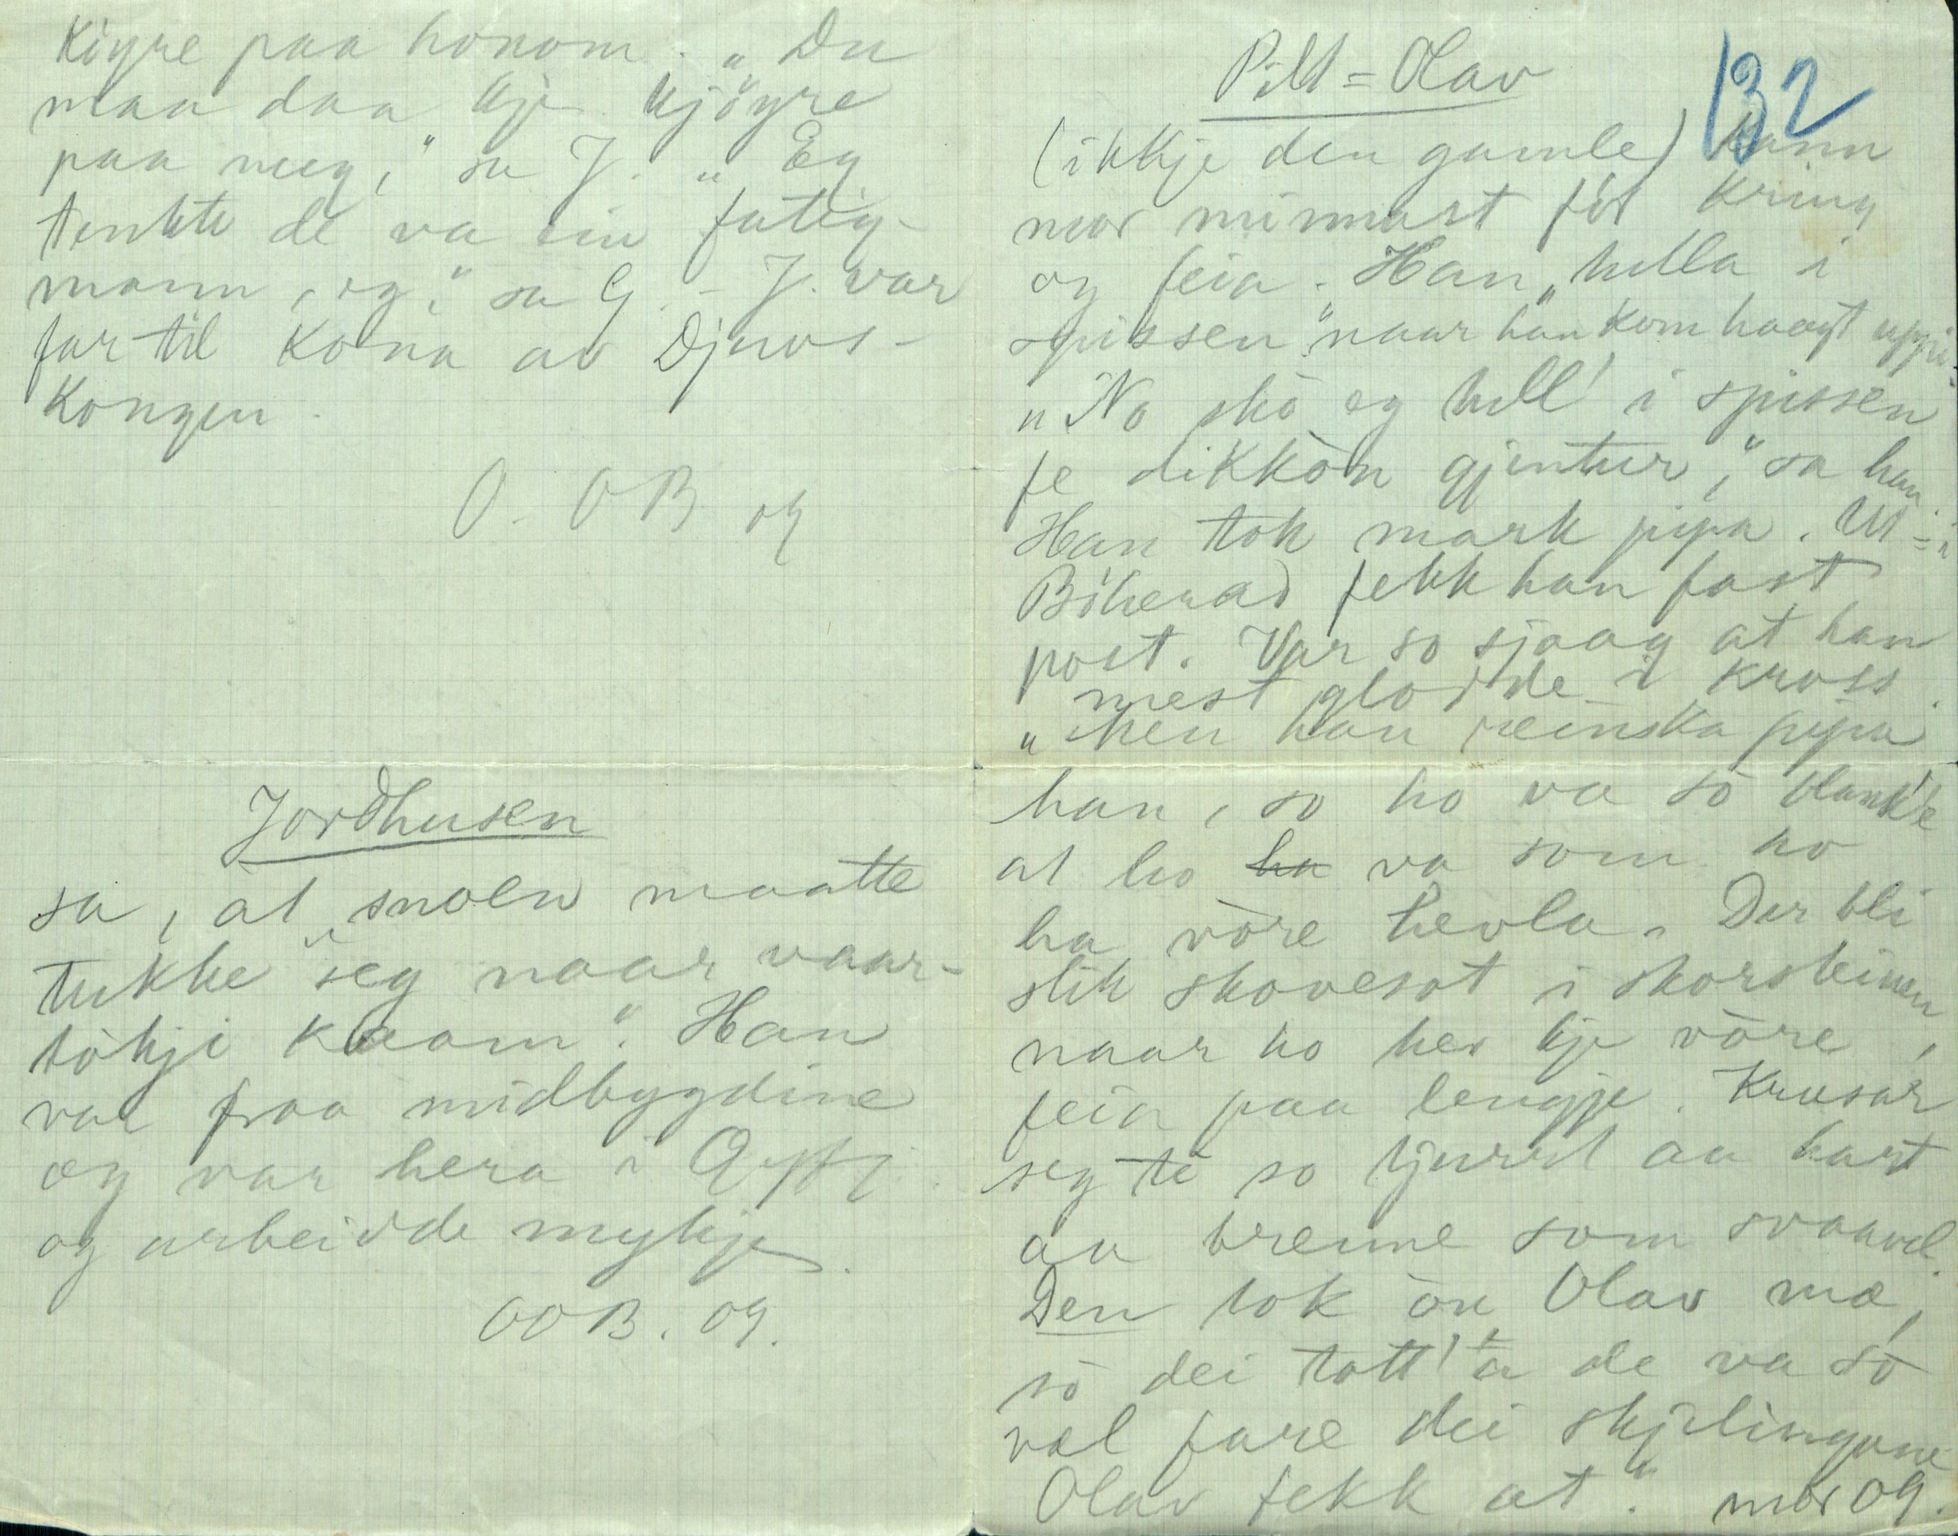 Köyre paa honom. „Du
maa daa kje kjöyre
paa meg," sa J. „Eg
tenkte de va ein fatig-
mann, eg," sa G. - J. var
far til Kona av Djuvs-
Kongen.
O. OB 09
Jordhusen
sa, at snoen maatte
„tukke seg naar vaar-
tökji kaam". Han
var fraa midbygdine
og var hera i
og arbeidde mykje.
OOB. 09.
132
Pilt-Olav
(ikkje den gamle) kann
mor minnast för kring
og feia. Han „hella i
spissen" naar han kom haagt uppi.
„No skò eg hell' i spissen
fe dikkòn gjentur," sa han.
Han tok mark pipa. Ut i
Böherad fekk han fast
post. Var so sjaag at han
mest glodde i kross.
„Men han reinska pipu
han, so ho va sò blank'e
at ho ha va som ho
ha vòre hevla. Der bli
slik skovesot i skorsteinen,
naar ho hev kje vòre
feia paa lengje. Krusar
seg te so tjurrt aa hart
aa brenne som svaavel.
Den tok òn Olav mæ,
sò dei tott' at de va sò
væl fare dei skjilingane
Olav fekk at". mor 09.